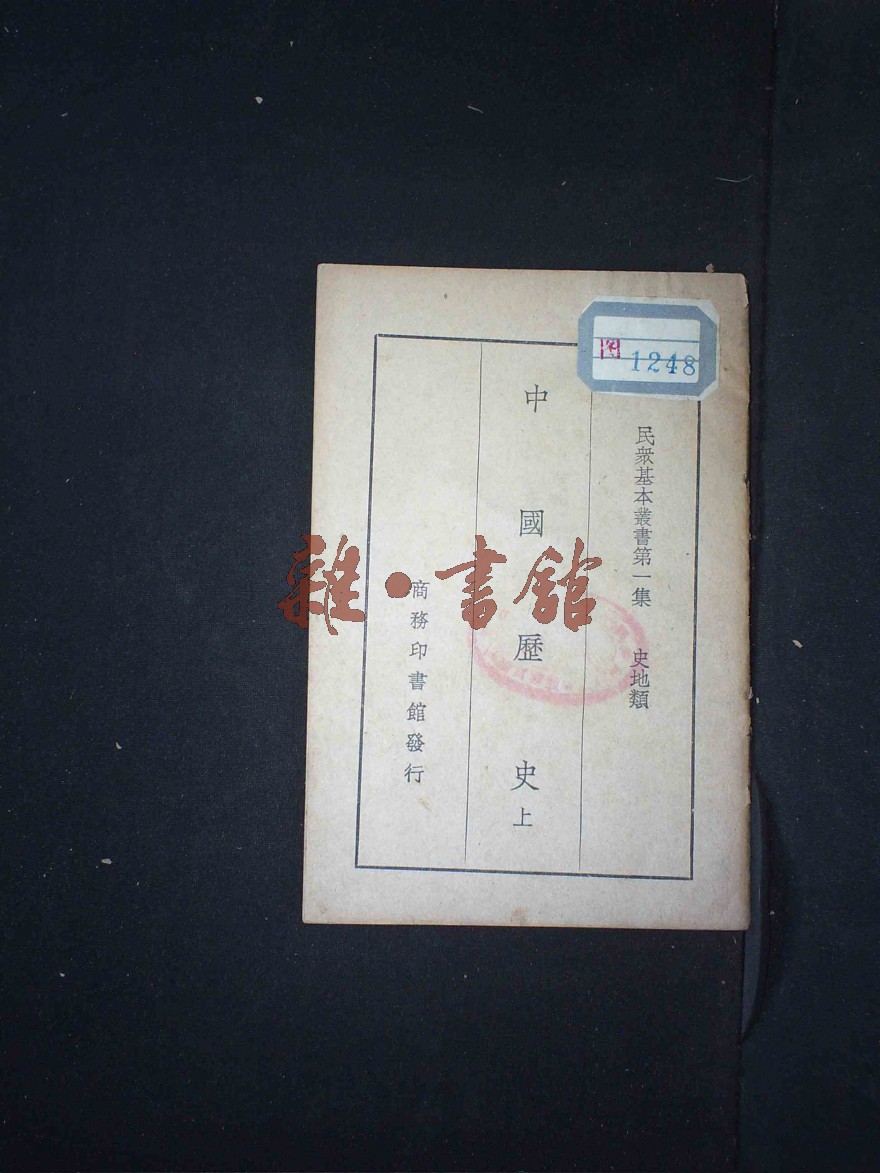 民衆基本叢書第一集 史地類
中國歷史上
商務印書館發行
图 1248
雜·書館